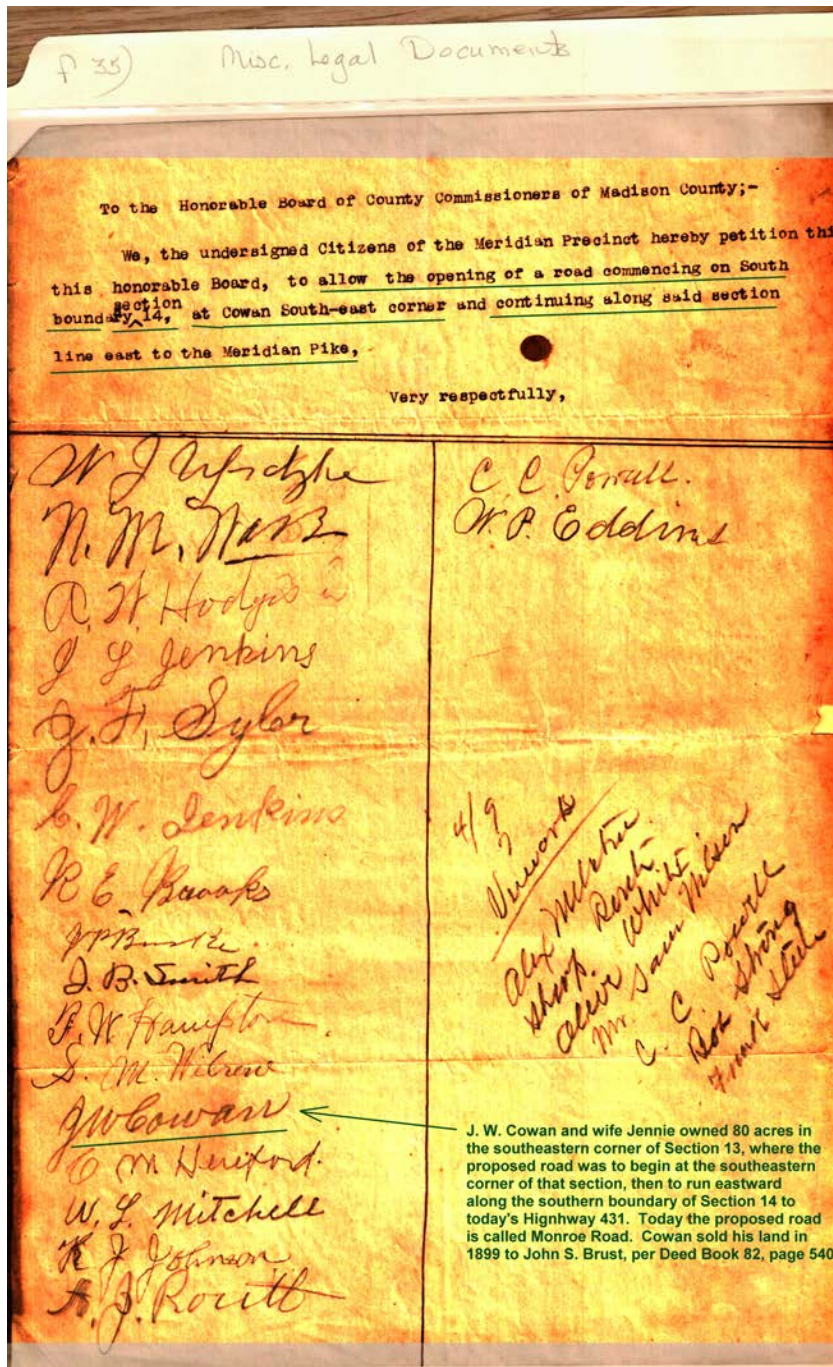 f 35) Misc. Legal Documents
To the Honorable Board of County Commissioners of Madison County;-
We, the undersigned Citizens of the Meridian Precinct hereby petition thi
this honorable Board, to allow the opening of a road commencing on South
section
boundary 14, at Cowan South-east corner and continuing along said section
line east to the Meridian Pike,
Very respectfully,
W J
N. M. Ware
A. W. Hodges
J L Jenkins
J. F. Sybr
C. W. Jenkins
R E Brooks
J P Burke
J. B. Smith
F. W Hampton
S. M.
J W Cowan
C M Hereford.
W. L. Mitchell
K J Johnson
A. J. Routt
C. C. Powell.
W. P. Eddins
4/9
Viewors
Alex
Sharp
Oliver White
Mr. Sam
C. C Powell
Bob Strong
Frank Steele
J. W. Cowan and wife Jennie owned 80 acres in
the southeastern corner of Section 13, where the
proposed road was to begin at the southeastern
corner of that section, then to run eastward
along the southern boundary of Section 14 to
today's Hignhway 431. Today the proposed road
is called Monroe Road. Cowan sold his land in
1899 to John S. Brust, per Deed Book 82, page 540